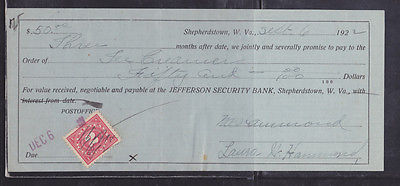 $50.00 Shepherdstown, W. Va., 6 192
months after date, we jointly and severally promise to pay to the
Order of
Fifty and 00/100 Dollars
For value received, negotiable and payable at the JEFFERSON SECURITY BANK, Shepherdstown, W. Va., with
interest from date.
POSTOFFICE
DEC 6
Hammond
Due x Laura V. Hammond